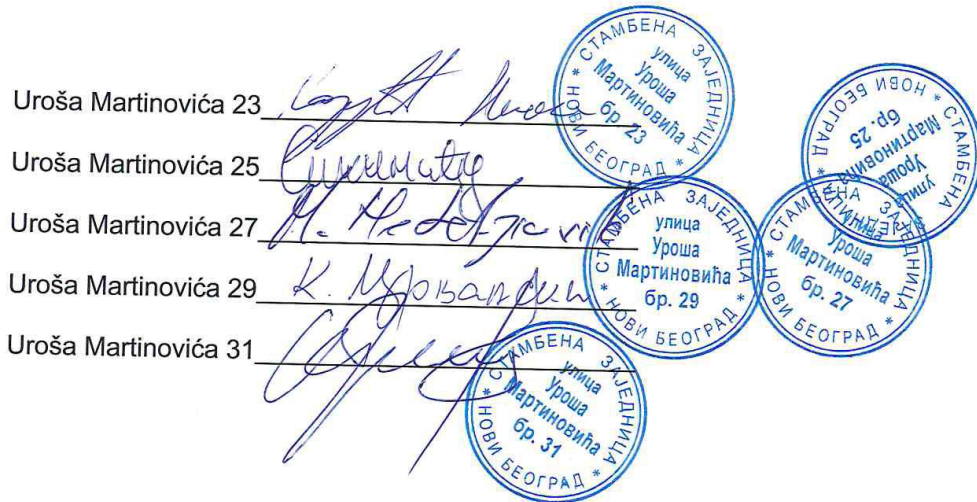 Uroša Martinovića 23
Uroša Martinovića 25
Uroša Martinovića 27
Uroša Martinovića 29
К.
Uroša Martinovića 31
СТАМБЕНА ЗАЈЕДНИЦА * НОВИ БЕОГРАД *
улица
Уроша
Мартиновића
бр. 23
СТАМБЕНА ЗАЈЕДНИЦА * НОВИ БЕОГРАД *
улица
Уроша
Мартиновића
бр. 25
СТАМБЕНА ЗАЈЕДНИЦА * НОВИ БЕОГРАД *
улица
Уроша
Мартиновића
бр. 29
СТАМБЕНА ЗАЈЕДНИЦА * НОВИ БЕОГРАД *
улица
Уроша
Мартиновића
бр. 27
СТАМБЕНА ЗАЈЕДНИЦА * НОВИ БЕОГРАД *
улица
Уроша
Мартиновића
бр. 31